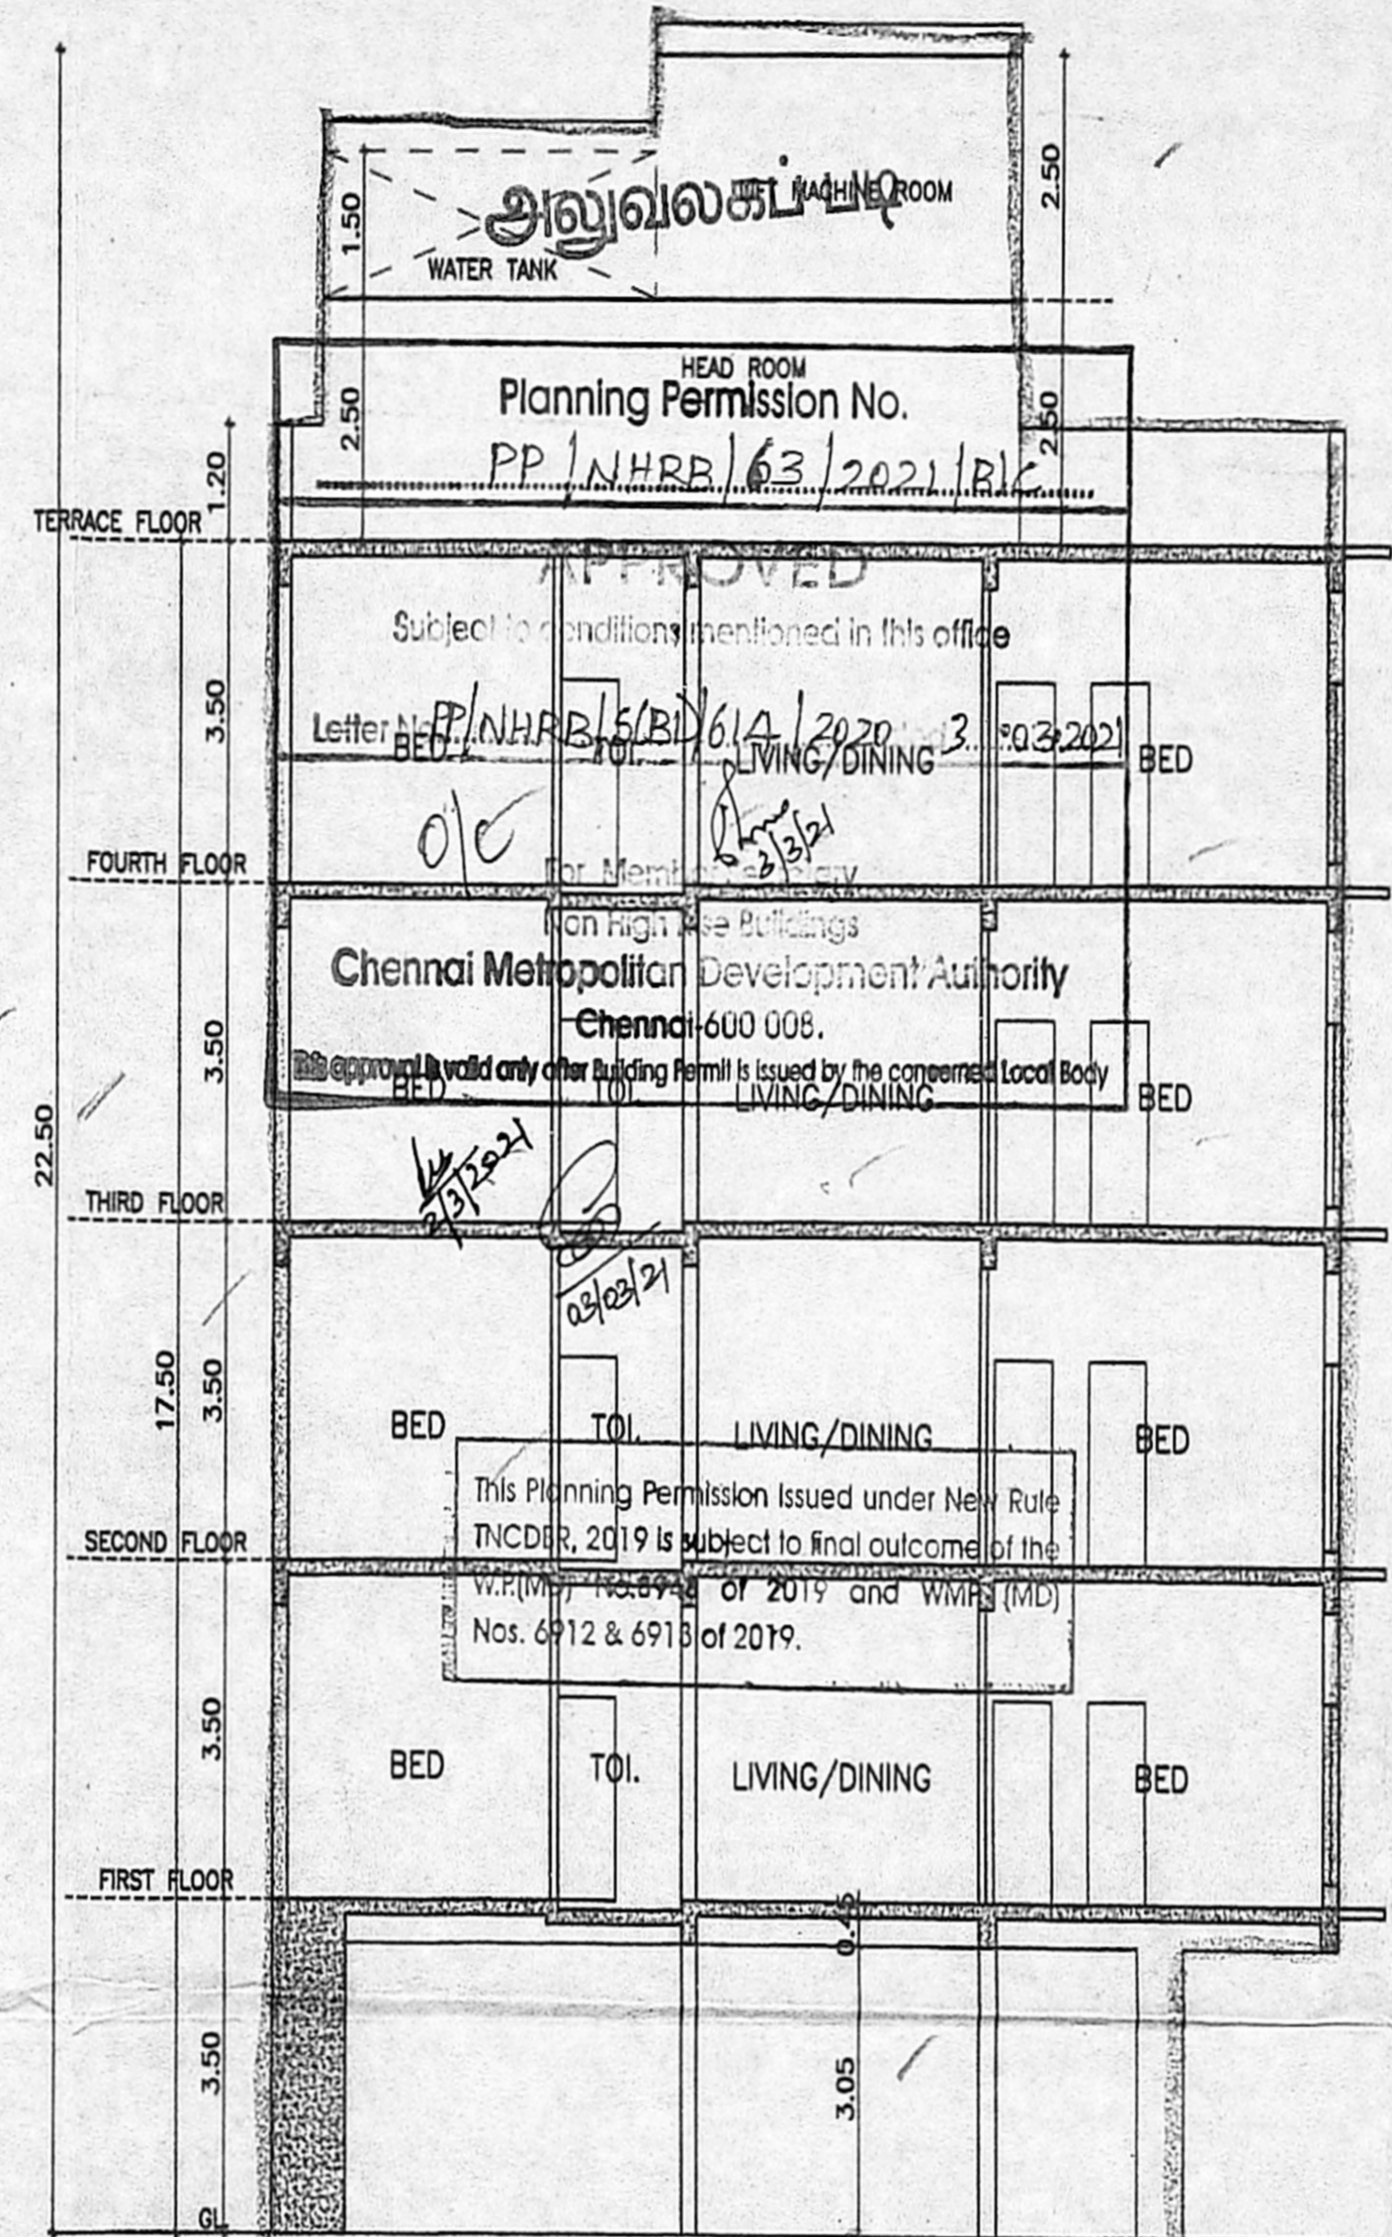 2.50
1.50
அலுவலகப் படி
LIFT MACHINE ROOM
WATER TANK
HEAD ROOM
Planning Permission No.
2.50
2.50
PP / NHRB / 63 / 2021 / B/C
1.20
TERRACE FLOOR
APPROVED
Subject to conditions mentioned in this office
3.50
Letter No. PP/NHRB/S(B1)/614/2020 3.03.2021
BED
TOI.
LIVING/DINING
BED
O/C
3/3/21
FOURTH FLOOR
For Member Secretary
Non High Rise Buildings
Chennai Metropolitan Development Authority
Chennai-600 008.
3.50
This approval is valid only after Building Permit is issued by the concerned Local Body
BED
TOI.
LIVING/DINING
BED
22.50
2/3/2021
THIRD FLOOR
03/03/21
17.50
3.50
BED
TOI.
LIVING/DINING
BED
This Planning Permission Issued under New Rule
TNCDBR, 2019 is subject to final outcome of the
SECOND FLOOR
W.P.(MD) No.8948 of 2019 and WMP (MD)
Nos. 6912 & 6913 of 2019.
3.50
BED
TOI.
LIVING/DINING
BED
FIRST FLOOR
0.45
3.50
3.05
GL